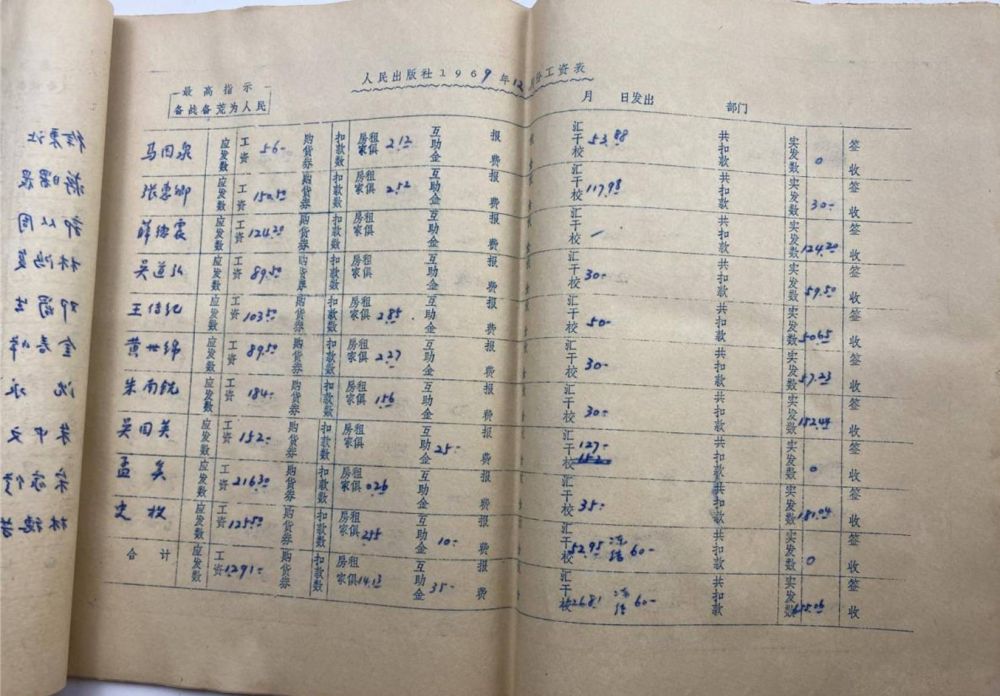 人民出版社1969年12月份工资表
最高指示
备战备荒为人民
月 日发出 部门
马同泉 应发数 工资 56- 购货券 扣款数 房租家俱 2.12 互助金 报费 汇干校 53.88 共扣款 实发数 0 签收
张惠卿 应发数 工资 150.50 购货券 扣款数 房租家俱 2.52 互助金 报费 汇干校 117.98 共扣款 实发数 30- 签收
薛德震 应发数 工资 124.20 购货券 扣款数 房租家俱 互助金 报费 汇干校 - 共扣款 实发数 124.20 签收
吴道弘 应发数 工资 89.50 购货券 扣款数 房租家俱 互助金 报费 汇干校 30- 共扣款 实发数 59.50 签收
王 应发数 工资 103.50 购货券 扣款数 房租家俱 2.85 互助金 报费 汇干校 50- 共扣款 实发数 50.65 签收
黄世绵 应发数 工资 89.50 购货券 扣款数 房租家俱 2.27 互助金 报费 汇干校 30- 共扣款 实发数 57.23 签收
朱南铣 应发数 工资 184- 购货券 扣款数 房租家俱 1.56 互助金 报费 汇干校 30- 共扣款 实发数 152.44 签收
吴国英 应发数 工资 152- 购货券 扣款数 房租家俱 互助金 25- 报费 汇干校 127- 共扣款 实发数 0 签收
孟奚 应发数 工资 216.30 购货券 扣款数 房租家俱 0.26 互助金 报费 汇干校 35- 共扣款 实发数 181.04 签收
史枚 应发数 工资 125.50 购货券 扣款数 房租家俱 2.55 互助金 10- 报费 汇干校 52.95 冻结 60- 共扣款 实发数 0 签收
合计 应发数 工资 1291- 购货券 扣款数 房租家俱 14.13 互助金 35- 报费 汇干校 526.81 冻结 60- 共扣款 实发数 655.06 签收